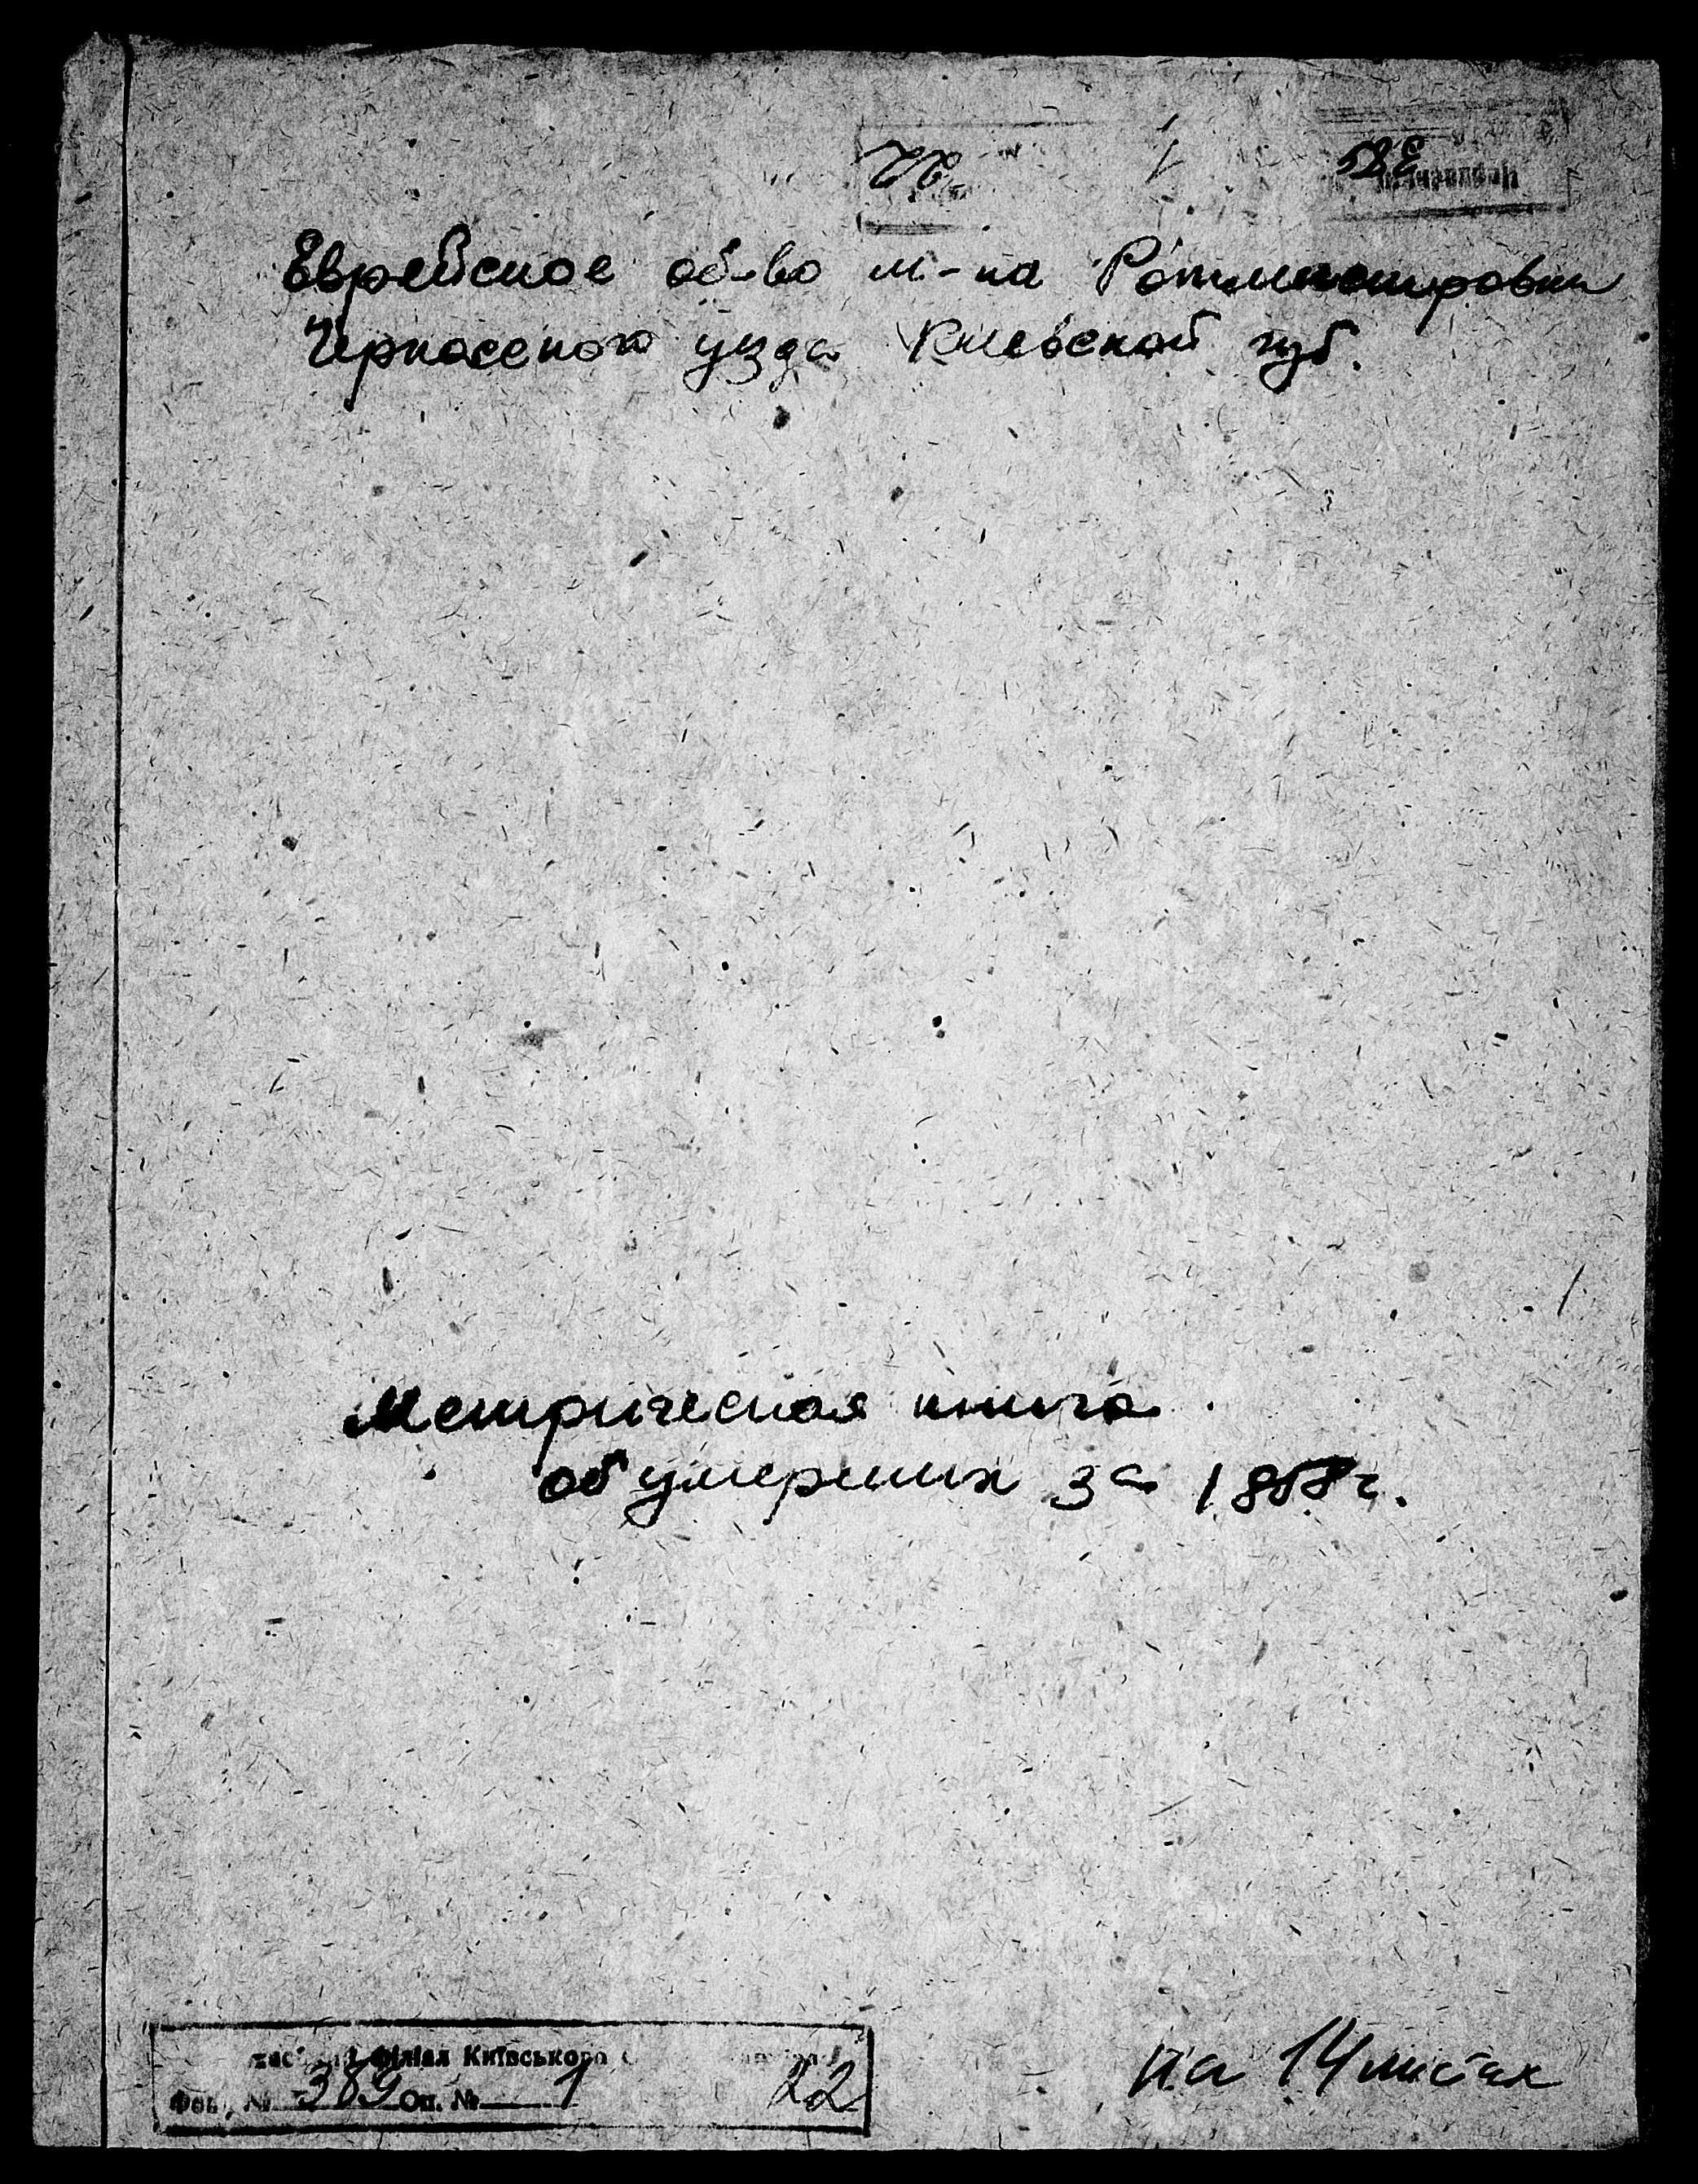 Еврейское об-во м-ка Ротмистровки
Черкасского уезда Киевской губ.
Метрическая книга
об умерших за 1858 г.
філіал Київського
№ 389 Оп. № 1 22
на 14 листах